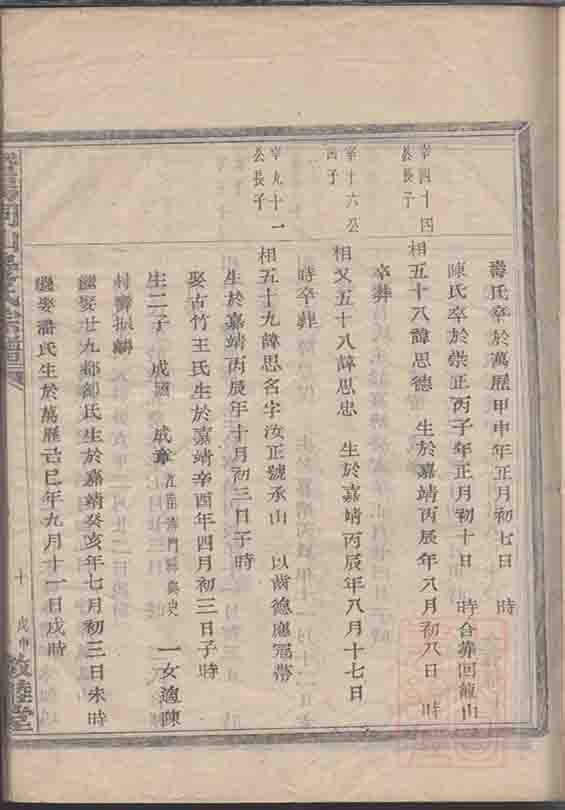 壽氏卒於萬歷甲申年正月初七日 時
陳氏卒於崇正丙子年正月初十日 時合葬回龍山
宰四十四
公長子
相五十八諱思德 生於嘉靖丙辰年八月初八日 時
卒葬
宰十六公
四子
相又五十八諱思忠 生於嘉靖丙辰年八月十七日
時卒葬
宰九十一
公長子
相五十九諱思名字汝正號承山 以齒德應冠帶
生於嘉靖丙辰年十月初三日子時
娶古竹王氏生於嘉靖辛酉年四月初三日子時
生二子 成 成章 一女適陳
村
娶廿九都 氏生於嘉靖癸亥年七月初三日未時
娶潘氏生於萬歷己巳年九月十一日戌時
宗譜
十
戊申
敦睦堂